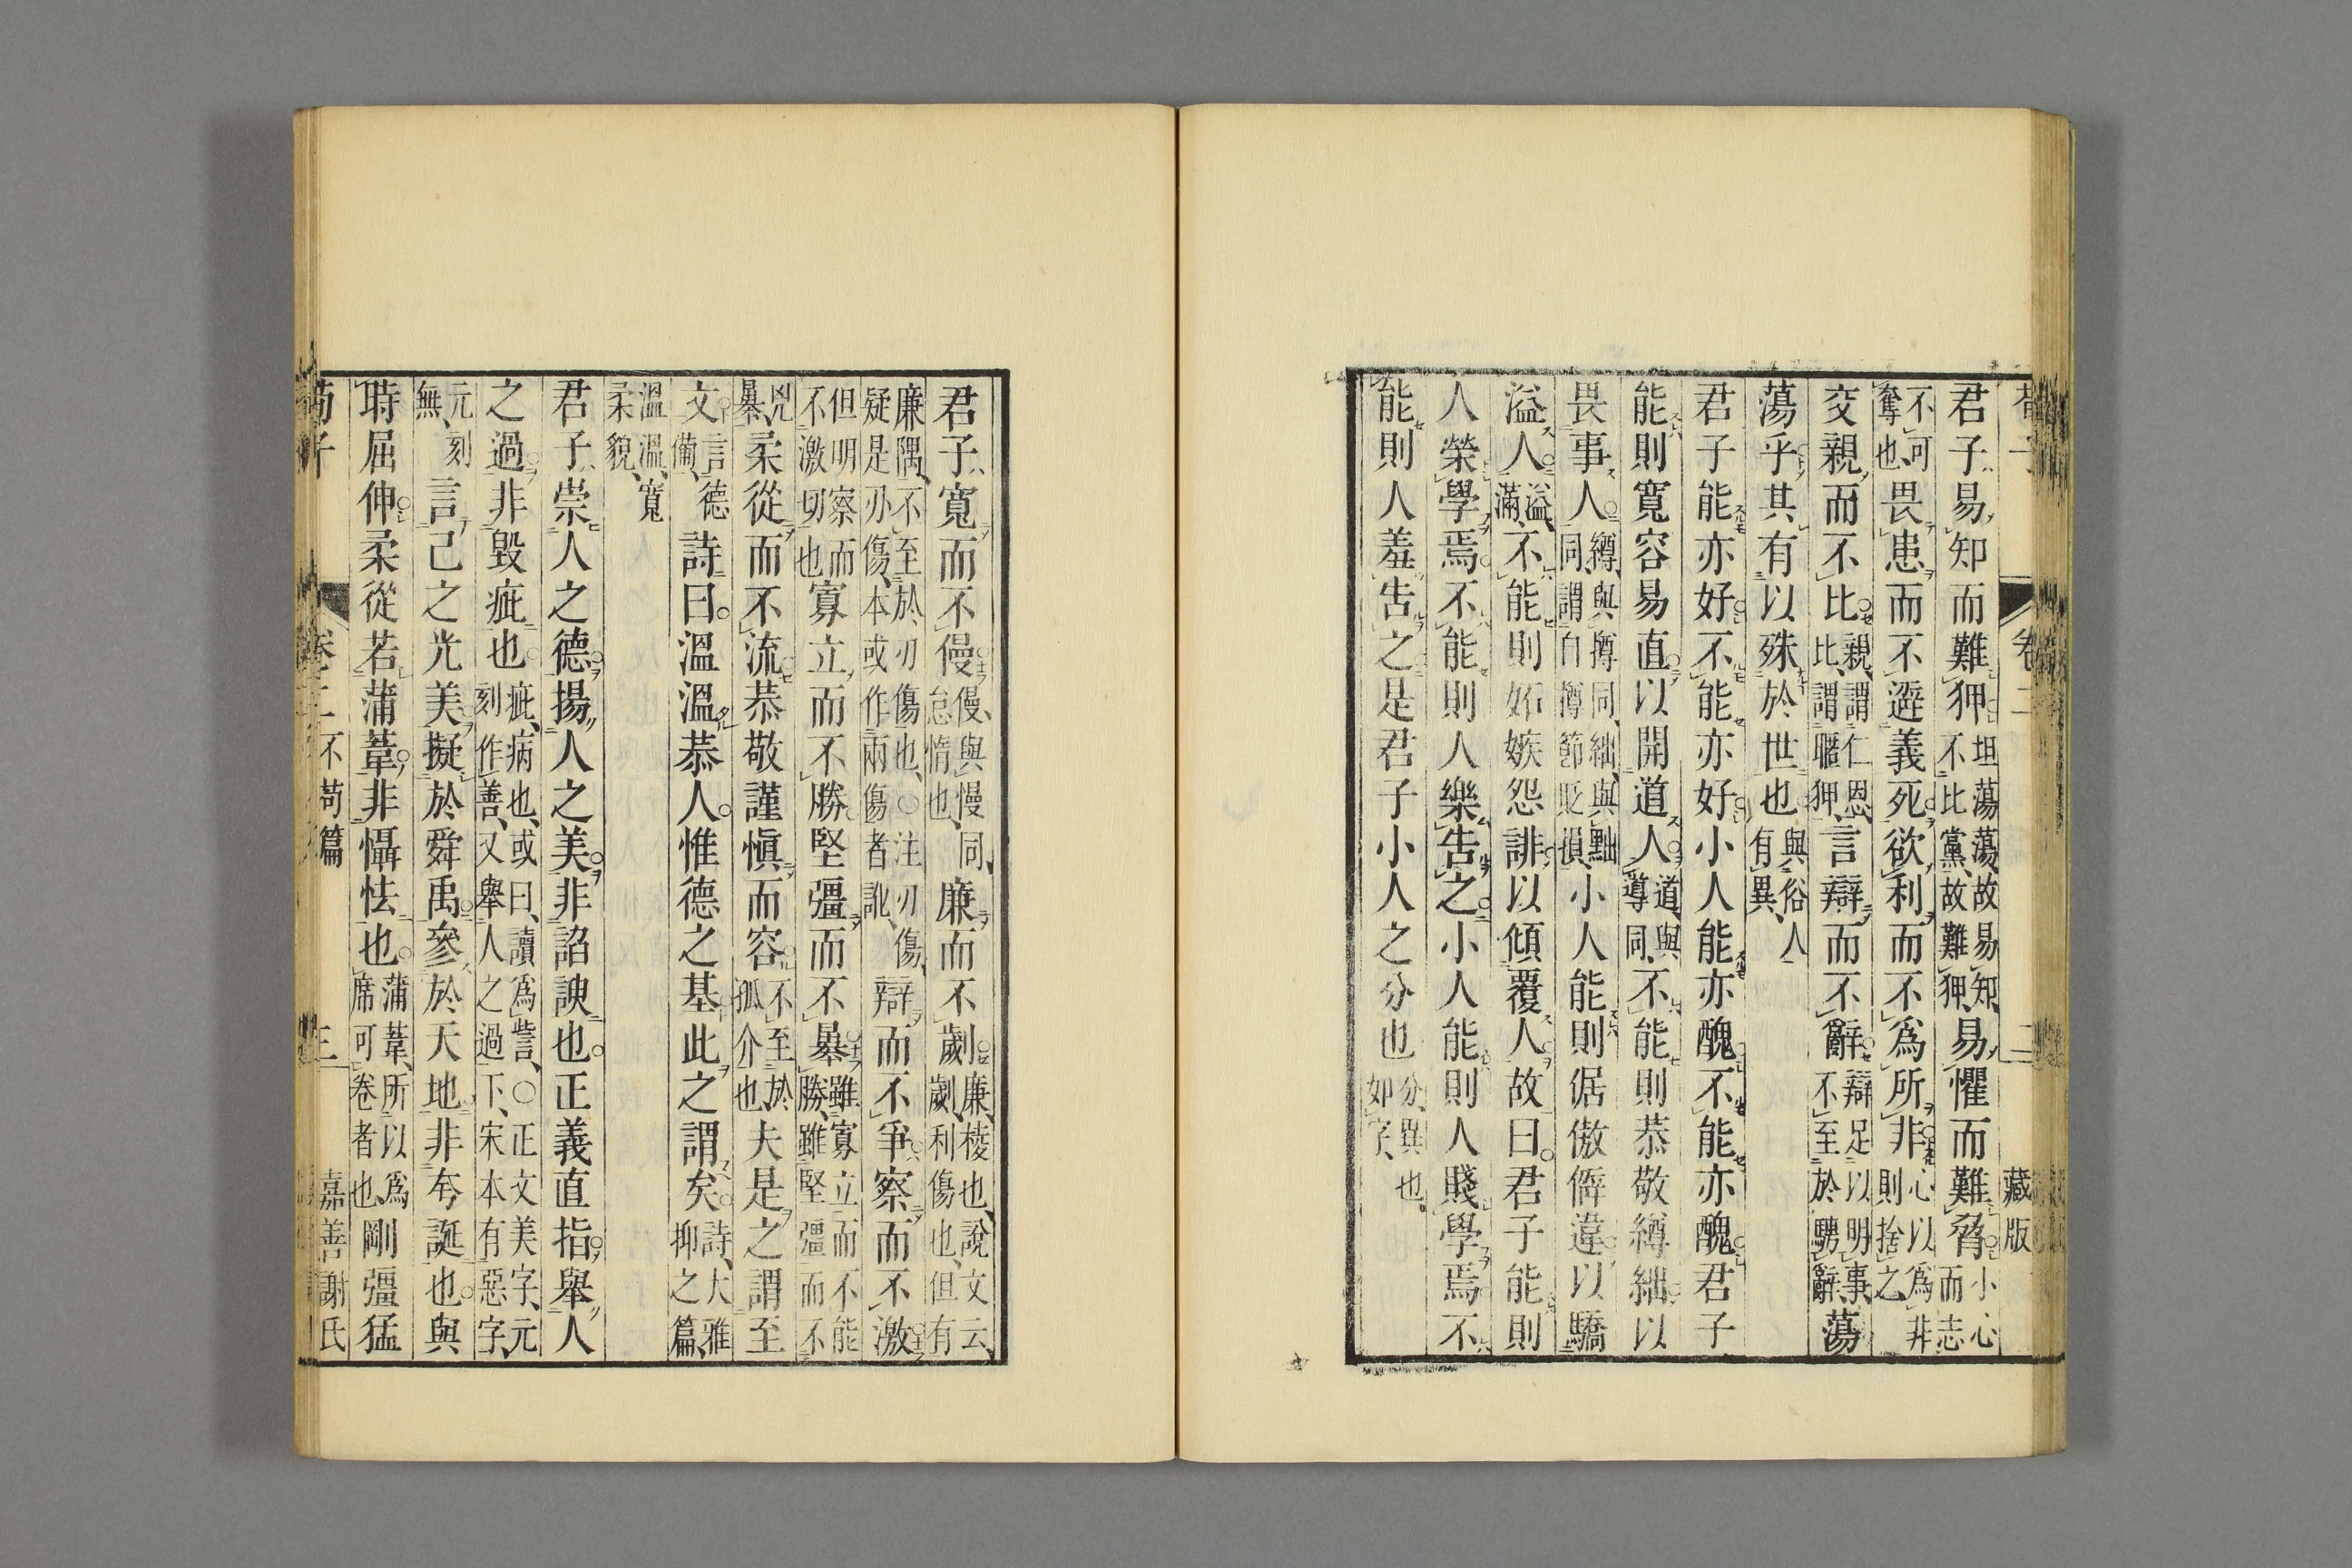 荀子 卷二 二 藏版
君子易知而難狎坦蕩蕩故易知不比黨故難狎易懼而難脅小心而志
不可奪也畏患而不避義死欲利而不爲所非心以爲非則捨之
交親而不比親謂仁恩比謂暱狎言辯而不辭辯足以明事不至於騁辭蕩
蕩乎其有以殊於世也與俗人有異
君子能亦好不能亦好小人能亦醜不能亦醜君子
能則寬容易直以開道人道與導同不能則恭敬繜絀以
畏事人繜與撙同絀與黜同謂自撙節貶損小人能則倨傲僻違以驕
溢人溢滿不能則妬嫉怨誹以傾覆人故曰君子能則
人榮學焉不能則人樂告之小人能則人賤學焉不
能則人羞告之是君子小人之分也分異也如字
君子寬而不僈僈與慢同怠惰也廉而不劌廉棱也說文云劌利傷也但有
廉隅不至於刃傷也○注刃傷疑是刅傷本或作兩傷者訛辯而不爭察而不激
但明察而不激切也寡立而不勝堅彊而不暴雖寡立而不能勝雖堅彊而不
兇暴柔從而不流恭敬謹愼而容不至於孤介也夫是之謂至
文言德備詩曰溫溫恭人惟德之基此之謂矣詩大雅抑之篇
溫溫寬柔貌
君子崇人之德揚人之美非諂諛也正義直指舉人
之過非毀疵也疵病也或曰讀爲訾○正文美字元刻作善又舉人之過下宋本有惡字
元刻無言己之光美擬於舜禹參於天地非夸誕也與
時屈伸柔從若蒲葦非懾怯也蒲葦所以爲席可卷者也剛彊猛
荀子 卷二 不苟篇 三 嘉善謝氏